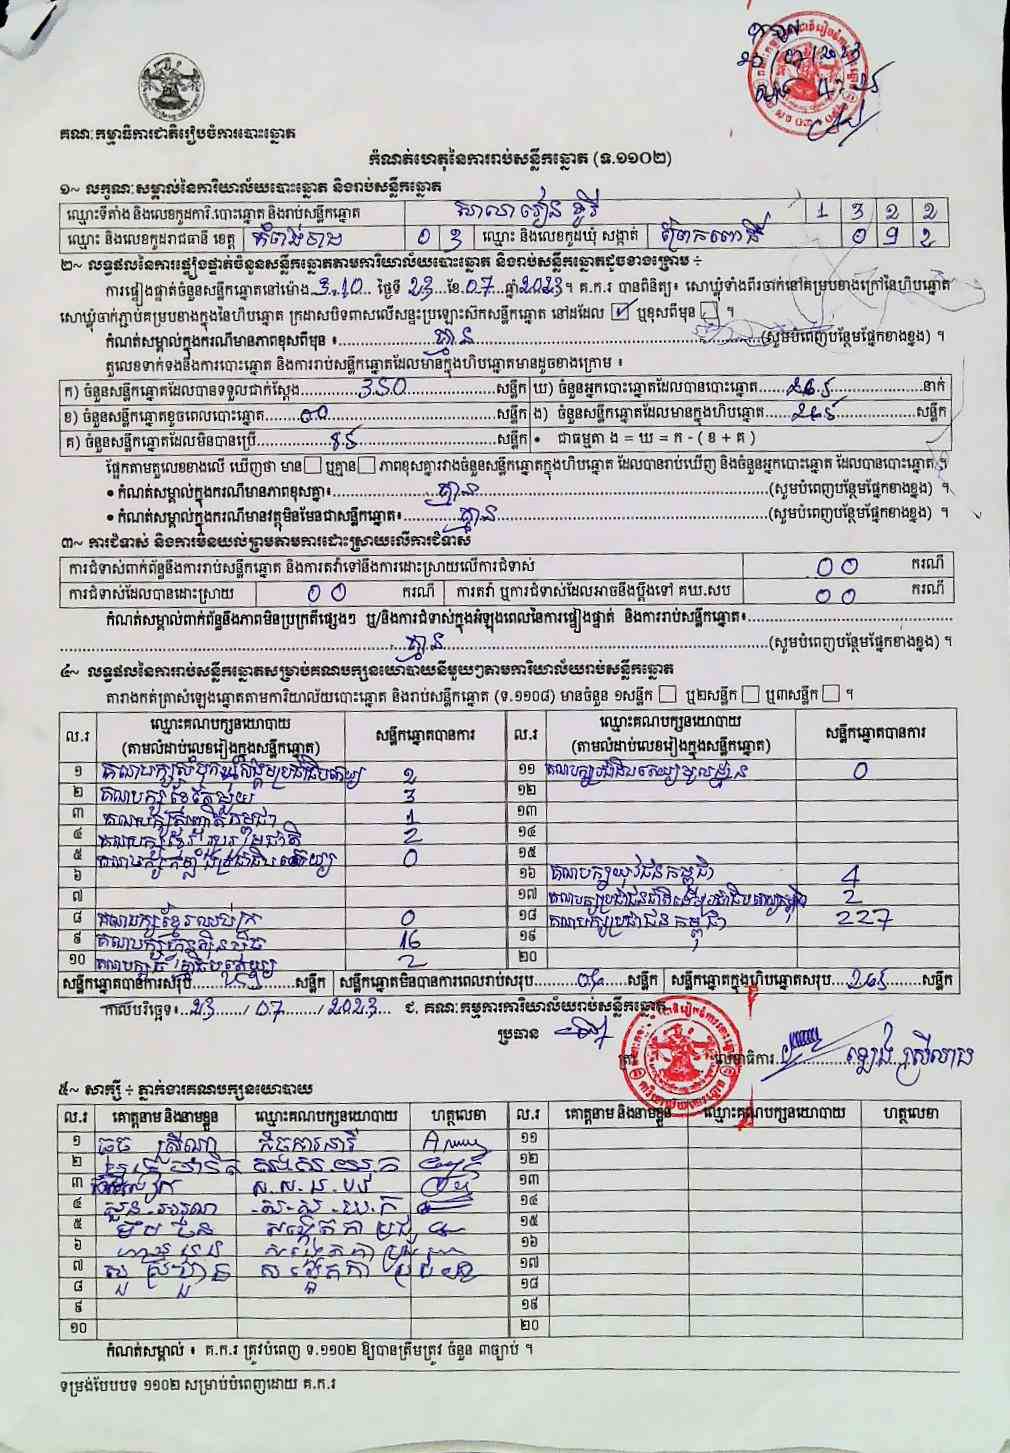 គណៈកម្មាធិការជាតិរៀបចំការបោះឆ្នោត
កំណត់ហេតុនៃការរាប់សន្លឹកឆ្នោត (ទ.១១០២)
១~ លក្ខណៈសម្គាល់នៃការិយាល័យបោះឆ្នោត និងរាប់សន្លឹកឆ្នោត
ឈ្មោះទីតាំង និងលេខកូដការិ.បោះឆ្នោត និងរាប់សន្លឹកឆ្នោត សាលារៀន 1 3 2 2
ឈ្មោះ និងលេខកូដរាជធានី ខេត្ត កំពង់ចាម 0 3 ឈ្មោះ និងលេខកូដឃុំ សង្កាត់ ព្រែកពោធិ៍ 0 9 2
២~ លទ្ធផលនៃការផ្ទៀងផ្ទាត់ចំនួនសន្លឹកឆ្នោតតាមការិយាល័យបោះឆ្នោត និងរាប់សន្លឹកឆ្នោតដូចខាងក្រោម ÷
ការផ្ទៀងផ្ទាត់ចំនួនសន្លឹកឆ្នោតនៅម៉ោង 3:10 ថ្ងៃទី 23 ខែ 07 ឆ្នាំ 2023 ។ គ.ក.រ បានពិនិត្យ៖ សោឃ្លុំទាំងពីរចាក់នៅគម្របខាងក្រៅនៃហិបឆ្នោត
សោឃ្លុំចាក់ភ្ជាប់គម្របខាងក្នុងនៃហិបឆ្នោត ក្រដាសបិទពាសលើសន្ទះប្រឡោះស៊កសន្លឹកឆ្នោត នៅដដែល ☑ ឬខុសពីមុន ☐ ។
កំណត់សម្គាល់ក្នុងករណីមានភាពខុសពីមុន ៖ គ្មាន (សូមបំពេញបន្ថែមផ្នែកខាងខ្នង) ។
តួលេខទាក់ទងនឹងការបោះឆ្នោត និងការរាប់សន្លឹកឆ្នោតដែលមានក្នុងហិបឆ្នោតមានដូចខាងក្រោម ៖
ក) ចំនួនសន្លឹកឆ្នោតដែលបានទទួលជាក់ស្តែង 350 សន្លឹក ឃ) ចំនួនអ្នកបោះឆ្នោតដែលបានបោះឆ្នោត 265 នាក់
ខ) ចំនួនសន្លឹកឆ្នោតខូចពេលបោះឆ្នោត 00 សន្លឹក ង) ចំនួនសន្លឹកឆ្នោតដែលមានក្នុងហិបឆ្នោត 265 សន្លឹក
គ) ចំនួនសន្លឹកឆ្នោតដែលមិនបានប្រើ 85 សន្លឹក • ជាធម្មតា ង = ឃ = ក - ( ខ + គ )
ផ្អែកតាមតួលេខខាងលើ ឃើញថា មាន ☐ ឬគ្មាន ☐ ភាពខុសគ្នារវាងចំនួនសន្លឹកឆ្នោតក្នុងហិបឆ្នោត ដែលបានរាប់ឃើញ និងចំនួនអ្នកបោះឆ្នោត ដែលបានបោះឆ្នោត ។
• កំណត់សម្គាល់ក្នុងករណីមានភាពខុសគ្នា៖ គ្មាន (សូមបំពេញបន្ថែមផ្នែកខាងខ្នង) ។
• កំណត់សម្គាល់ក្នុងករណីមានវត្ថុមិនមែនជាសន្លឹកឆ្នោត៖ គ្មាន (សូមបំពេញបន្ថែមផ្នែកខាងខ្នង) ។
៣~ ការជំទាស់ និងការមិនយល់ព្រមតាមការដោះស្រាយលើការជំទាស់
ការជំទាស់ពាក់ព័ន្ធនឹងការរាប់សន្លឹកឆ្នោត និងការតវ៉ាទៅនឹងការដោះស្រាយលើការជំទាស់ 00 ករណី
ការជំទាស់ដែលបានដោះស្រាយ 00 ករណី ការតវ៉ា ឬការជំទាស់ដែលអាចនឹងប្តឹងទៅ គឃ.សប 00 ករណី
កំណត់សម្គាល់ពាក់ព័ន្ធនឹងភាពមិនប្រក្រតីផ្សេងៗ ឬ/និងការជំទាស់ក្នុងអំឡុងពេលនៃការផ្ទៀងផ្ទាត់ និងការរាប់សន្លឹកឆ្នោត៖
គ្មាន (សូមបំពេញបន្ថែមផ្នែកខាងខ្នង) ។
៤~ លទ្ធផលនៃការរាប់សន្លឹកឆ្នោតសម្រាប់គណបក្សនយោបាយនីមួយៗតាមការិយាល័យរាប់សន្លឹកឆ្នោត
តារាងកត់ត្រាសំឡេងឆ្នោតតាមការិយាល័យបោះឆ្នោត និងរាប់សន្លឹកឆ្នោត (ទ.១១០៨) មានចំនួន ១សន្លឹក ☐ ឬ២សន្លឹក ☐ ឬ៣សន្លឹក ☐ ។
ល.រ ឈ្មោះគណបក្សនយោបាយ (តាមលំដាប់លេខរៀងក្នុងសន្លឹកឆ្នោត) សន្លឹកឆ្នោតបានការ ល.រ ឈ្មោះគណបក្សនយោបាយ (តាមលំដាប់លេខរៀងក្នុងសន្លឹកឆ្នោត) សន្លឹកឆ្នោតបានការ
១ គណបក្សសំបុកឃ្មុំសង្គមប្រជាធិបតេយ្យ 2 ១១ គណបក្សប្រជាធិបតេយ្យមូលដ្ឋាន 0
២ គណបក្សខ្មែរតែមួយ 3 ១២
៣ គណបក្សស្រលាញ់ជាតិកម្ពុជា 1 ១៣
៤ គណបក្សខ្មែររួបរួមជាតិ 2 ១៤
៥ គណបក្សកម្លាំងប្រជាធិបតេយ្យ 0 ១៥
៦ ១៦ គណបក្សយុវជនកម្ពុជា 4
៧ ១៧ 2
៨ គណបក្សខ្មែរឈប់ក្រ 0 ១៨ គណបក្សប្រជាជនកម្ពុជា 227
៩ គណបក្សហ៊្វុនស៊ិនប៉ិច 16 ១៩
១០ គណបក្សធម្មាធិបតេយ្យ 2 ២០
សន្លឹកឆ្នោតបានការសរុប សន្លឹក សន្លឹកឆ្នោតមិនបានការពេលរាប់សរុប សន្លឹក សន្លឹកឆ្នោតក្នុងហិបឆ្នោតសរុប 265 សន្លឹក
កាលបរិច្ឆេទ៖ 23 / 07 / 2023 ជ. គណៈកម្មការការិយាល័យរាប់សន្លឹកឆ្នោត
ប្រធាន
លេខាធិការ ឡេង ស្រីលាន
៥~ សាក្សី ÷ ភ្នាក់ងារគណបក្សនយោបាយ
ល.រ គោត្តនាម និងនាមខ្លួន ឈ្មោះគណបក្សនយោបាយ ហត្ថលេខា ល.រ គោត្តនាម និងនាមខ្លួន ឈ្មោះគណបក្សនយោបាយ ហត្ថលេខា
១ កិច្ចការនារី ១១
២ ១២
៣ ១៣
៤ ស.ស.យ.ក ១៤
៥ ១៥
៦ ១៦
៧ ១៧
៨ ១៨
៩ ១៩
១០ ២០
កំណត់សម្គាល់ ៖ គ.ក.រ ត្រូវបំពេញ ទ.១១០២ ឱ្យបានត្រឹមត្រូវ ចំនួន ៣ច្បាប់ ។
ទម្រង់បែបបទ ១១០២ សម្រាប់បំពេញដោយ គ.ក.រ